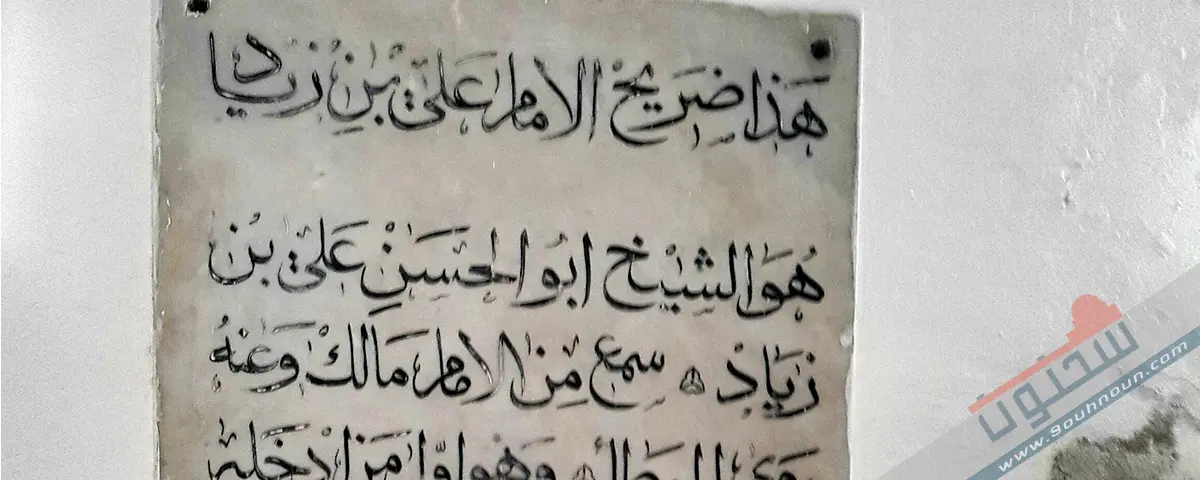 هَذا ضِرَيحْ الامام عَلي بْنِ زيَاد
هُوَ الشيْخ ابُو الحَسَنِ عَلي بن
زيَادْ ه سمع مِنَ الامام مَالكْ وَعَنهُ
رَوَى الموطأ ه وهوَ اوّل مَنْ ادخلهُ
سحنون
www.9ouhnoun.com